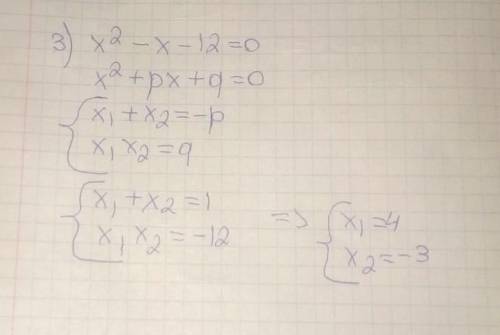 3) x² - x - 12 = 0
x² + px + q = 0
{ x₁ + x₂ = -p
x₁ x₂ = q
{ x₁ + x₂ = 1
x₁ x₂ = -12
=> { x₁ = 4
x₂ = -3